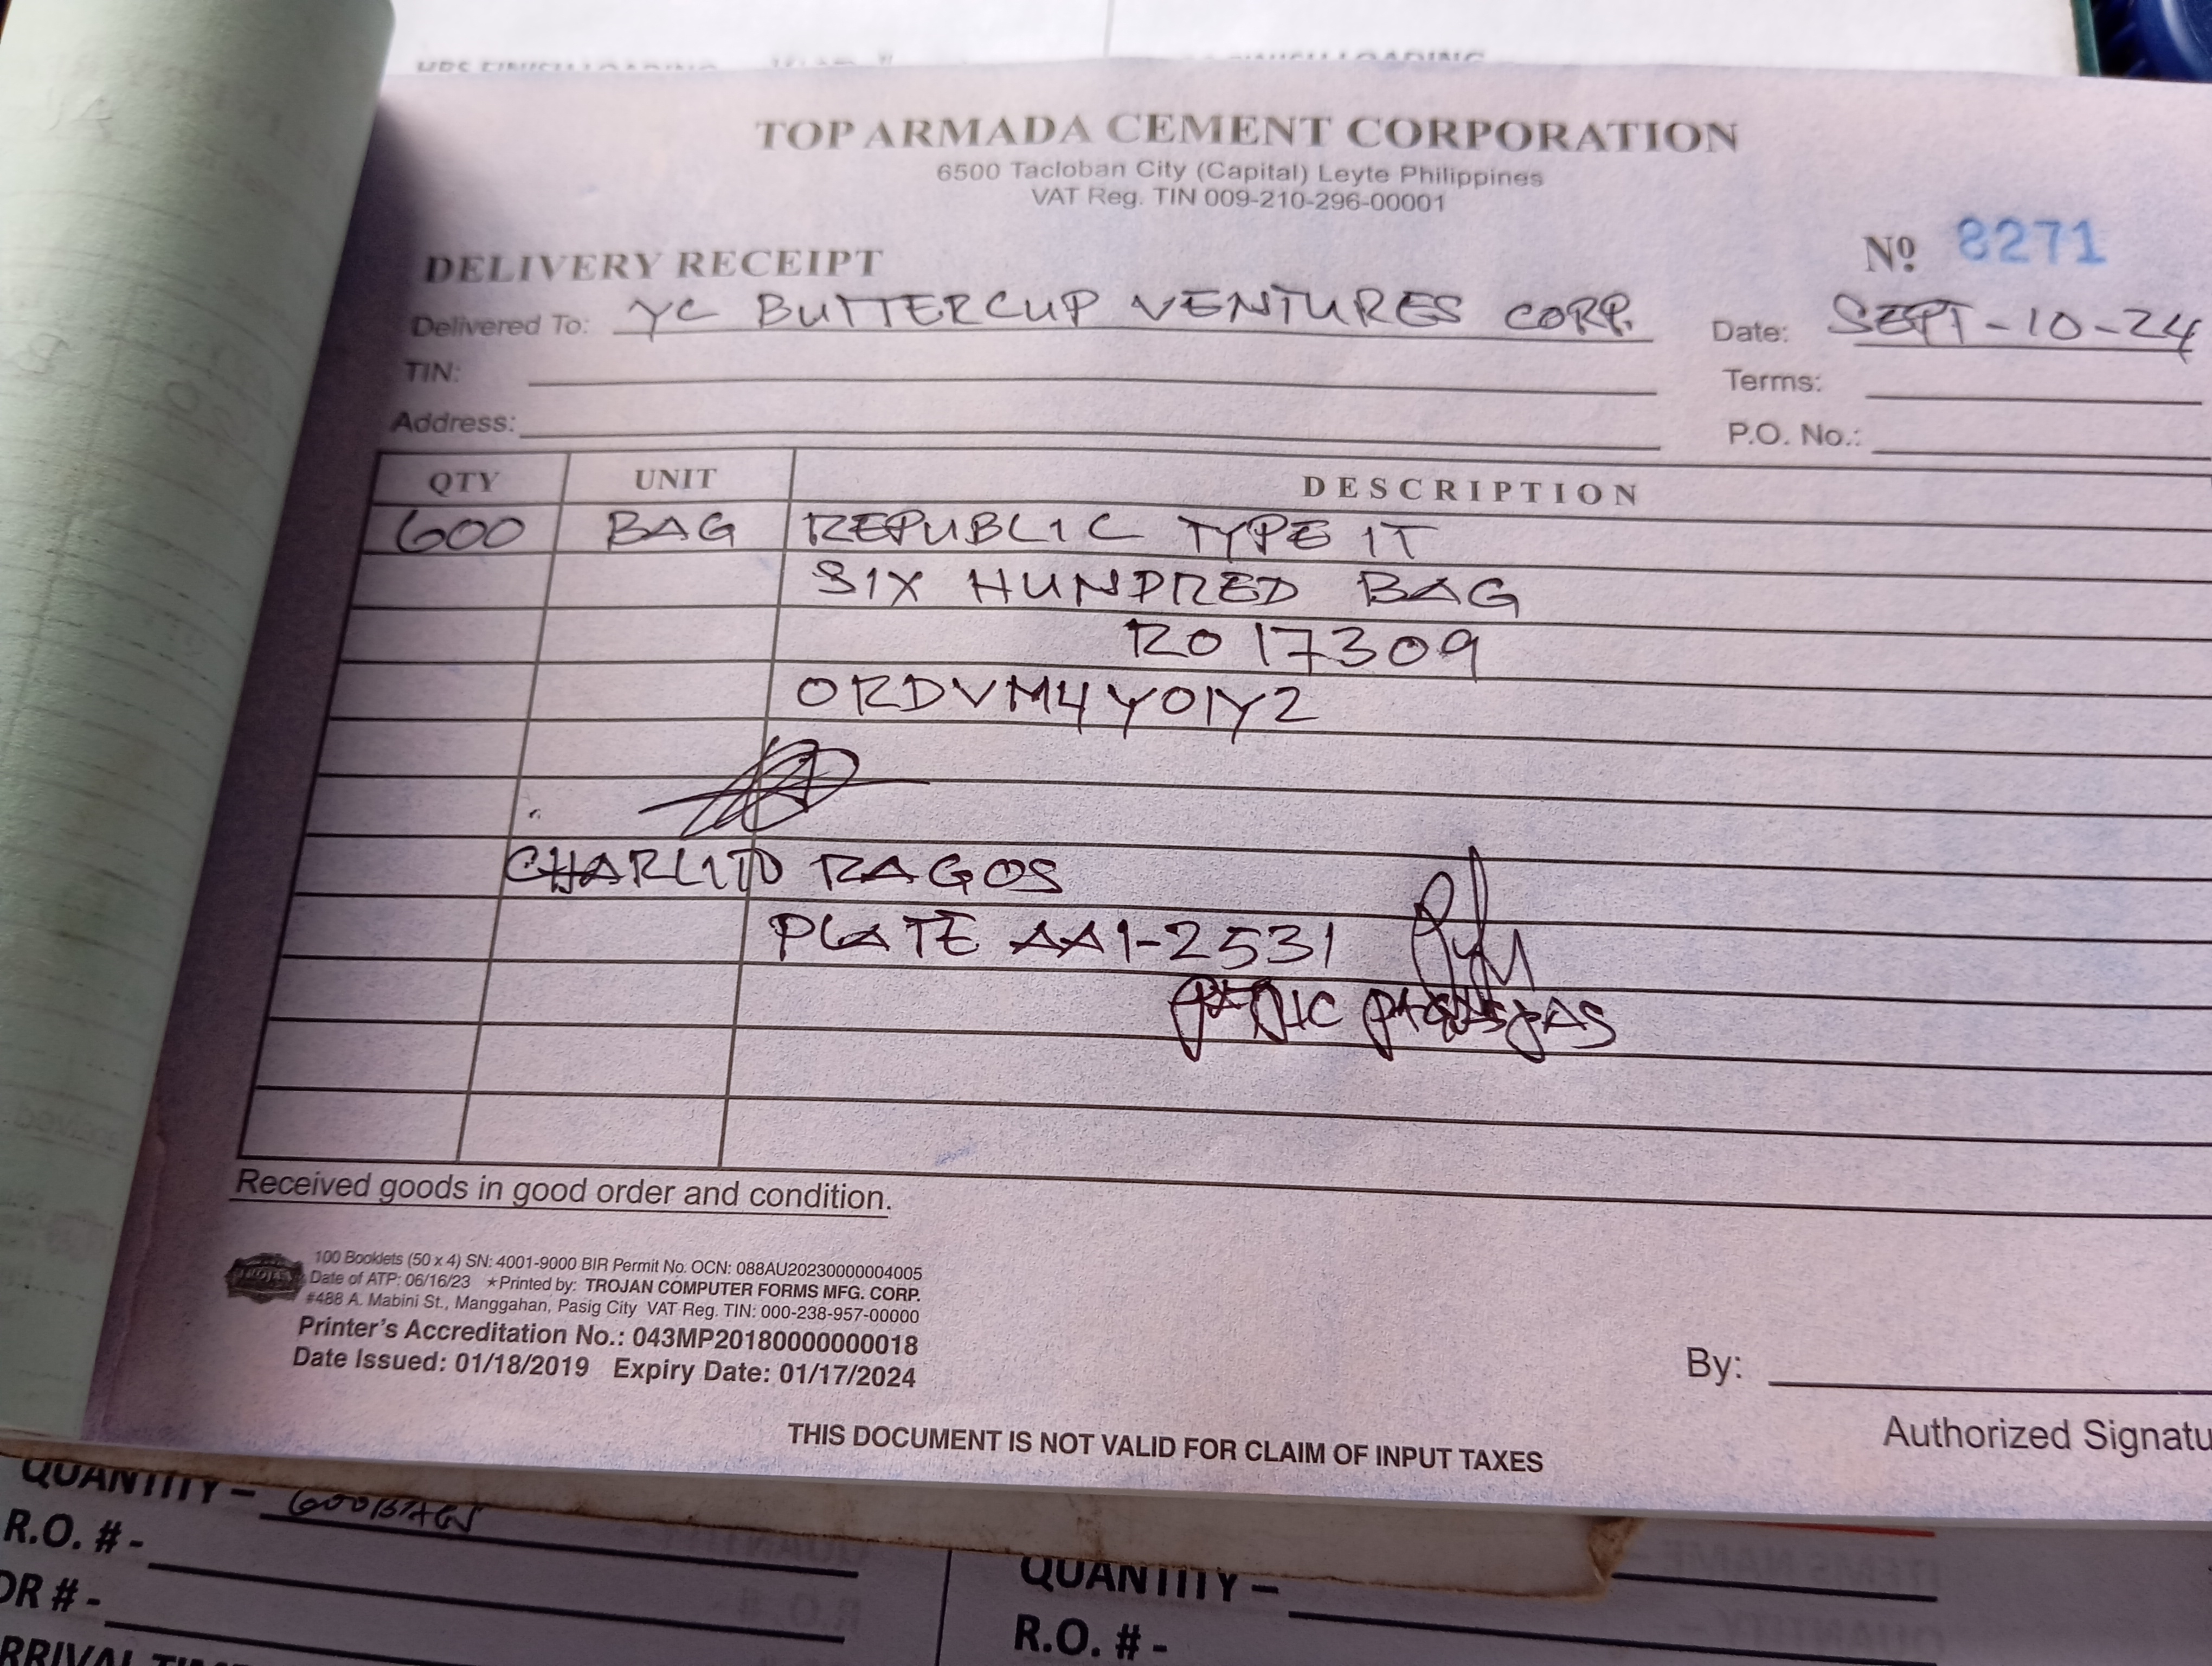 TOP ARMADA CEMENT CORPORATION
6500 Tacloban City (Capital) Leyte Philippines
VAT Reg. TIN 009-210-296-00001
DELIVERY RECEIPT
Nº 8271
Delivered To: YC BUTTERCUP VENTURES CORP.
Date: SEPT-10-24
TIN:
Terms:
Address:
P.O. No.:
QTY UNIT DESCRIPTION
600 BAG REPUBLIC TYPE 1T
SIX HUNDRED BAG
RO 17309
ORDVM4Y01Y2
CHARLITO RAGOS
PLATE AA1-2531
Received goods in good order and condition.
100 Booklets (50 x 4) SN: 4001-9000 BIR Permit No. OCN: 088AU20230000004005
Date of ATP: 06/16/23 ★Printed by: TROJAN COMPUTER FORMS MFG. CORP.
#488 A. Mabini St., Manggahan, Pasig City VAT Reg. TIN: 000-238-957-00000
Printer's Accreditation No.: 043MP20180000000018
Date Issued: 01/18/2019 Expiry Date: 01/17/2024
By:
Authorized Signatu
THIS DOCUMENT IS NOT VALID FOR CLAIM OF INPUT TAXES
QUANTITY – 600BAGS
R.O. # -
OR # -
QUANTITY –
R.O. # -